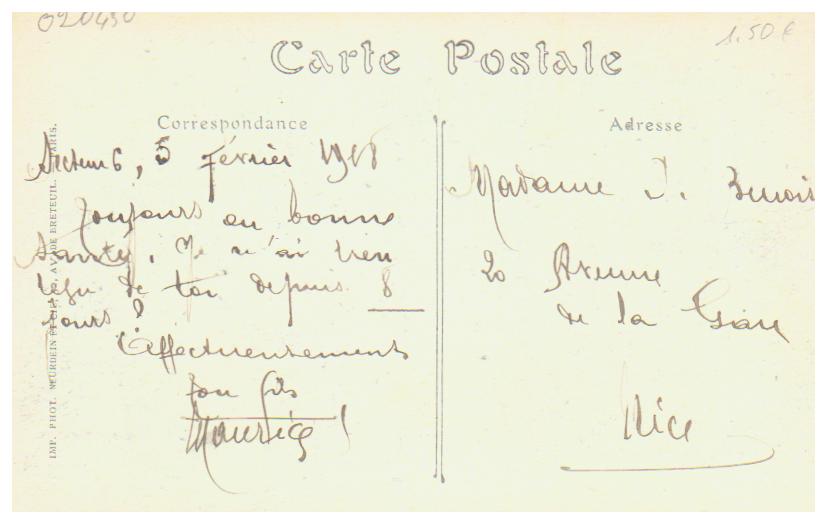 020450
1.50 €
Carte Postale
Correspondance
Adresse
Secteur 6, 5 février 1918
Toujours en bonne
santé. Je n'ai rien
reçu de toi depuis 8
jours ?
Affectueusement
ton fils
Maurice
Madame J. Benois
20 Avenue
de la Gare
Nice
IMP. PHOT. NEURDEIN ET CIE, 52, AV. DE BRETEUIL. PARIS.